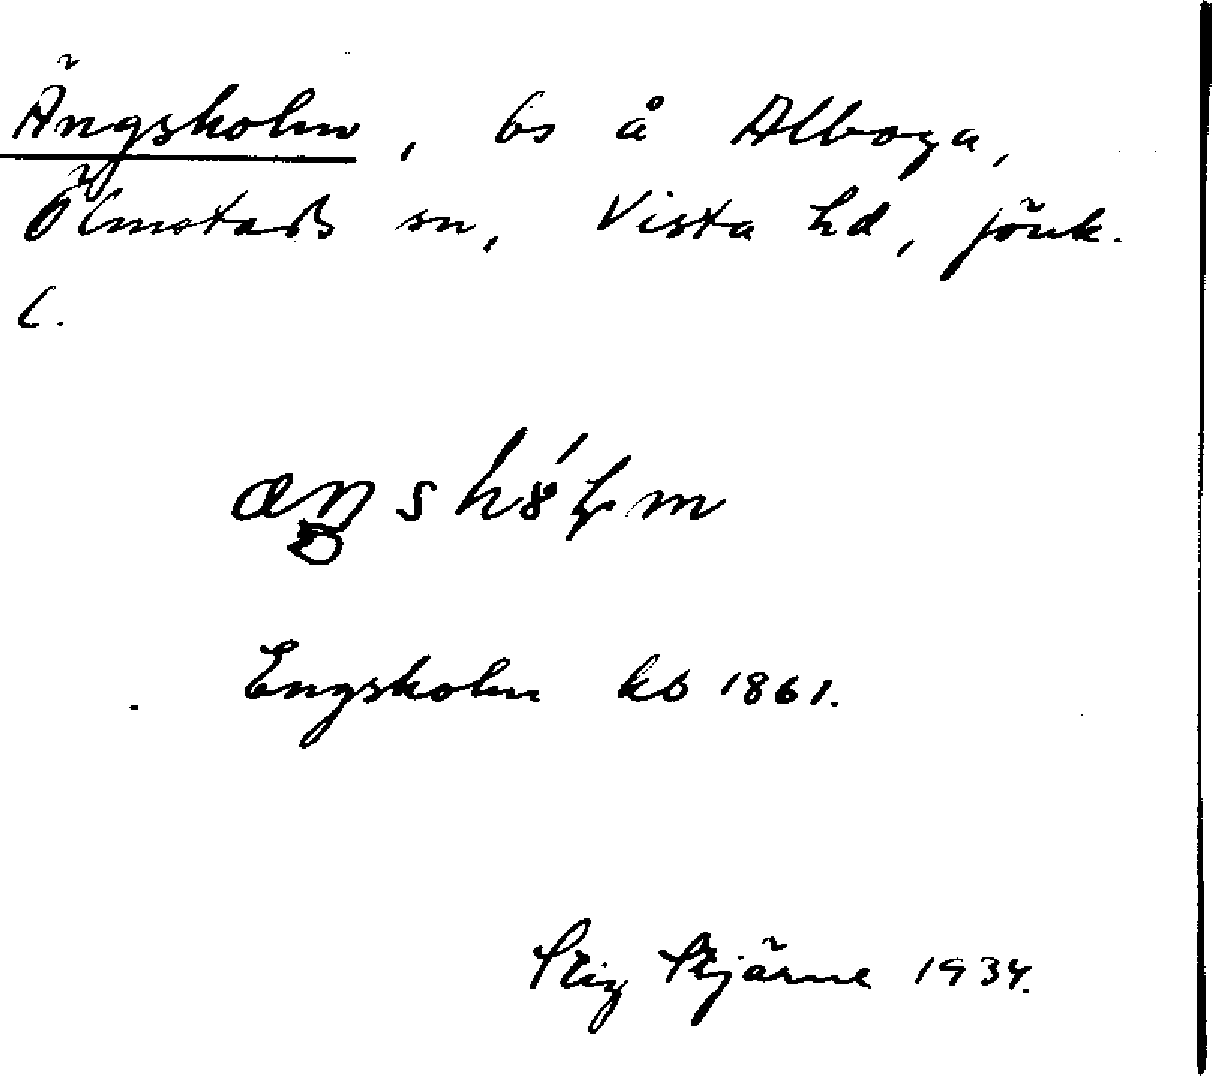 Ängsholm, bs å Alboga,
Ölmstads sn, Vista hd, Jönk.
l.
Engsholm kb 1861.
Stig Stjärne 1934.